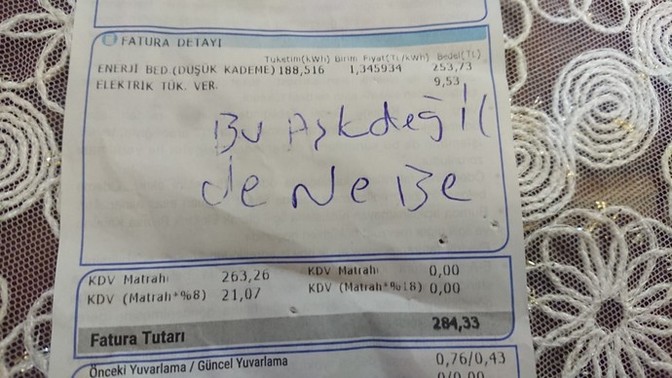 FATURA DETAYI
Tüketim(kWh) Birim Fiyat(TL/kWh) Bedel(TL)
ENERJİ BED.(DÜŞÜK KADEME) 188,516 1,345934 253,73
ELEKTRİK TÜK. VER. 9,53
Bu Aşkdeğil
de Ne Be
KDV Matrahı 263,26 KDV Matrahı 0,00
KDV (Matrah*%8) 21,07 KDV (Matrah*%18) 0,00
Fatura Tutarı 284,33
Önceki Yuvarlama / Güncel Yuvarlama 0,76/0,43
0/0,00